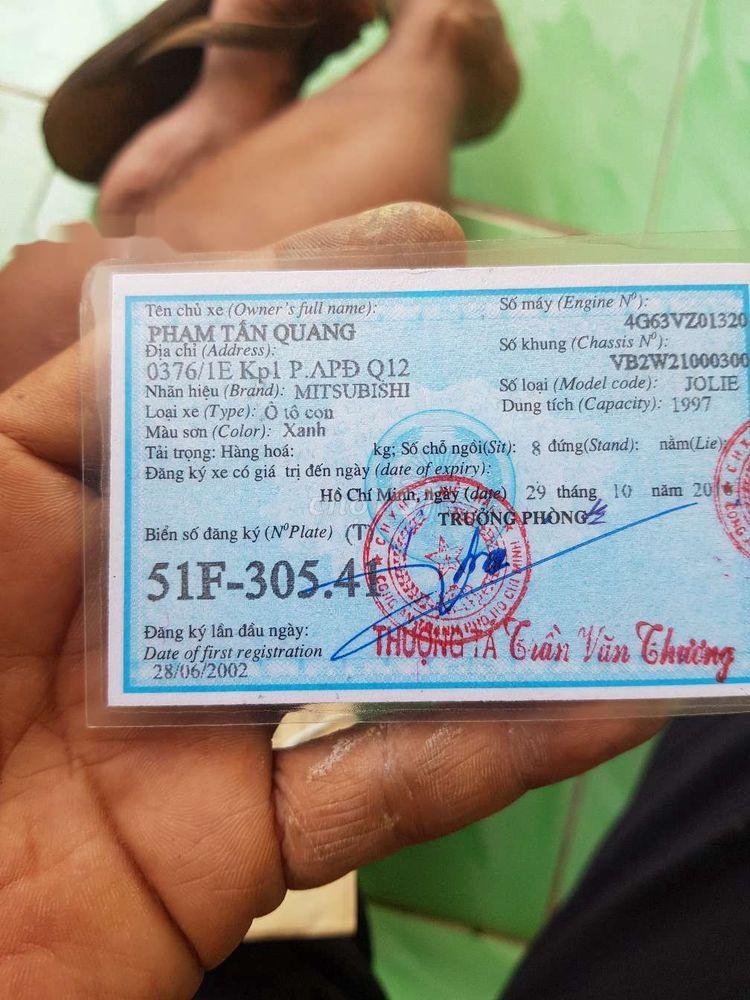 Tên chủ xe (Owner's full name):
PHẠM TẤN QUANG
Địa chỉ (Address):
0376/1E Kp1 P.APĐ Q12
Nhãn hiệu (Brand): MITSUBISHI
Loại xe (Type): Ô tô con
Màu sơn (Color): Xanh
Số máy (Engine Nº):
4G63VZ01320
Số khung (Chassis Nº):
VB2W21000300
Số loại (Model code): JOLIE
Dung tích (Capacity): 1997
Tải trọng: Hàng hoá: kg; Số chỗ ngồi(Sit): 8 đứng(Stand): nằm(Lie):
Đăng ký xe có giá trị đến ngày (date of expiry):
Hồ Chí Minh, ngày (date) 29 tháng 10 năm 20
TRƯỞNG PHÒNG
Biển số đăng ký (NºPlate) (T
51F-305.41
Đăng ký lần đầu ngày:
Date of first registration
28/06/2002
THƯỢNG TÁ Trần Văn Thương